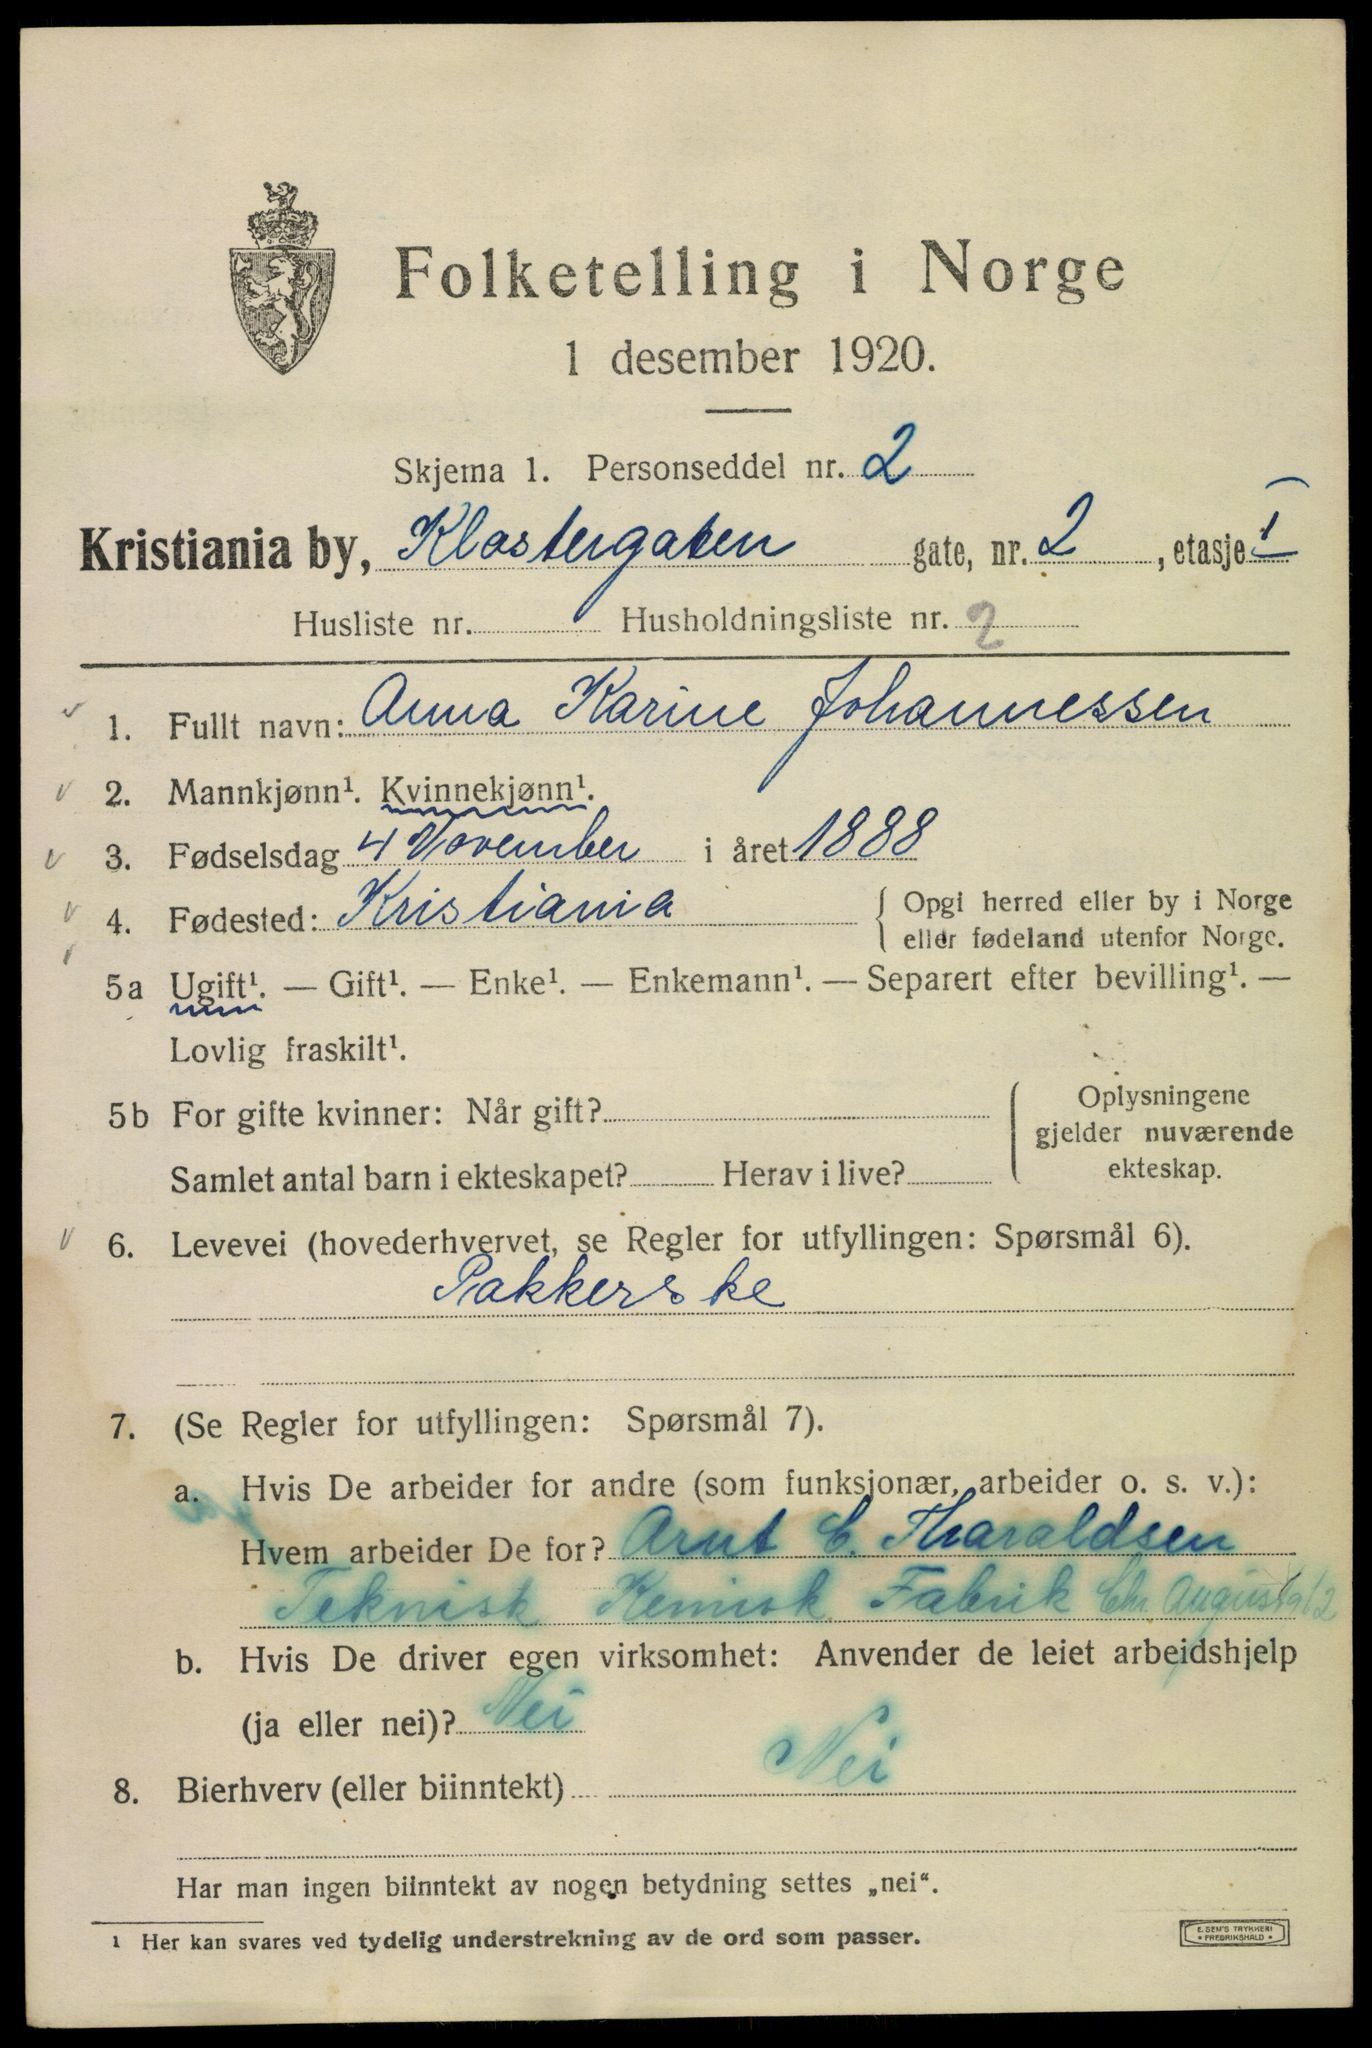 Folketelling i Norge
1 desember 1920.
Skjema 1. Personseddel nr. 2
Kristiania by, Klostergaten gate, nr. 2, etasje 1
Husliste nr. Husholdningsliste nr. 2
1. Fullt navn: Anna Karine Johannessen
2. Mannkjønn¹. Kvinnekjønn¹.
3. Fødselsdag 4 November i året 1888
4. Fødested: Kristiania { Opgi herred eller by i Norge
eller fødeland utenfor Norge.
5a Ugift¹. — Gift¹. — Enke¹. — Enkemann¹. — Separert efter bevilling¹. —
Lovlig fraskilt¹.
5b For gifte kvinner: Når gift?
Samlet antal barn i ekteskapet? Herav i live?
Oplysningene
gjelder nuværende
ekteskap.
6. Levevei (hovederhvervet, se Regler for utfyllingen: Spørsmål 6).
Pakkerske
7. (Se Regler for utfyllingen: Spørsmål 7).
a. Hvis De arbeider for andre (som funksjonær, arbeider o. s. v.):
Hvem arbeider De for? Arnt C. Tharaldsen
Teknisk Kemisk Fabrik Chr Augustg 12
b. Hvis De driver egen virksomhet: Anvender de leiet arbeidshjelp
(ja eller nei)? Nei
8. Bierhverv (eller biinntekt) Nei
Har man ingen biinntekt av nogen betydning settes „nei“.
¹ Her kan svares ved tydelig understrekning av de ord som passer.
E. SEM'S TRYKKERI
FREDRIKSHALD